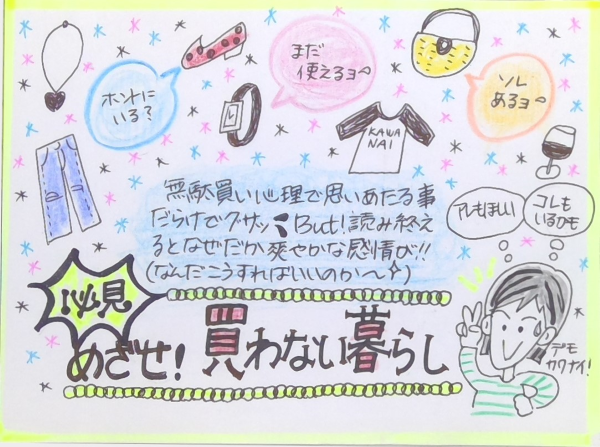 ホントに
いる？
まだ
使えるョ
ソレ
あるョ
KAWA
NAI
無駄買い心理で思いあたる事
だらけでグサッ But!読み終え
るとなぜだか爽やかな感情が!!
(なんだこうすればいいのか〜)
アレもほしい
コレも
いるかも
必見
めざせ! 買わない暮らし
デモ
カワナイ!